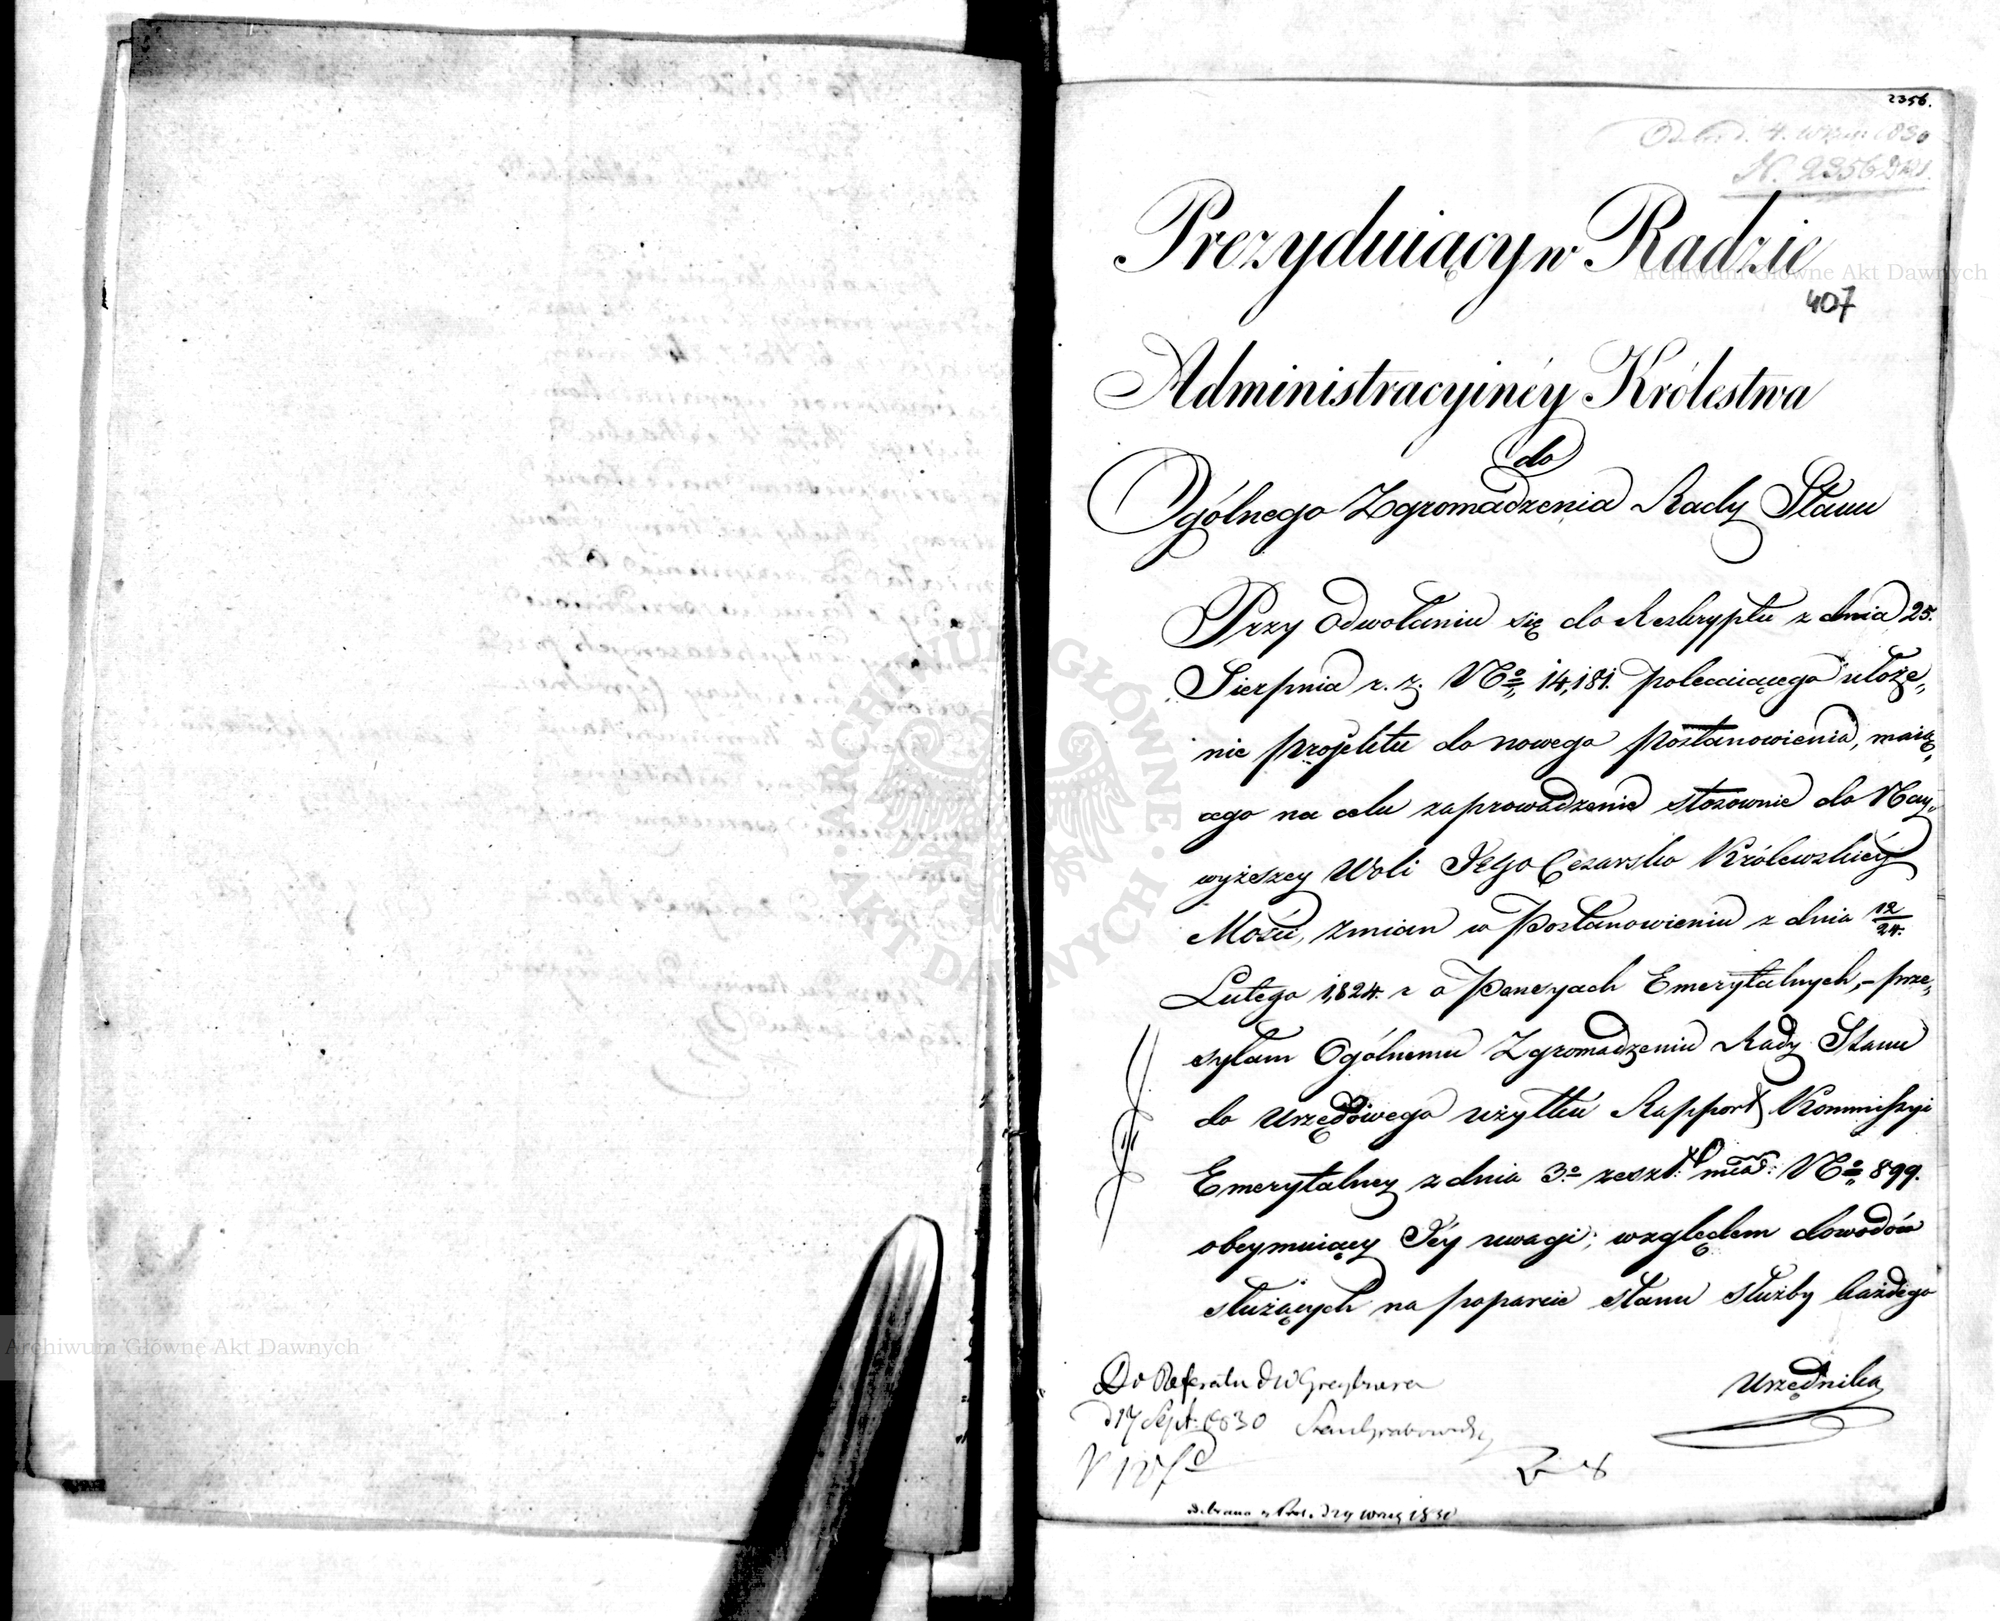 2356.
Odebr. d. 4. Wrześ. 1830
N. 2356
Prezyduiący w Radzie
407
Administracyinéy Królestwa
do
Ogólnego Zgromadzenia Rady Stanu
Przy odwołaniu się do Reskryptu z dnia 25.
Sierpnia r. z. No 14,181. polecaiącego ułoże„
nie projektu do nowego postanowienia, maią„
cego na celu zaprowadzenie stosownie do Nay„
wyższey Woli Jego Cesarsko Królewskiéy
Mości, zmian w Postanowieniu z dnia 12/24.
Lutego 1,824. r o Pensyach Emerytalnych, – prze„
syłam Ogólnemu Zgromadzeniu Rady Stanu
do urzędowego użytku Rapport Kommissyi
Emerytalney z dnia 3.o zeszł: mca: No 899.
obeymuiący Jéy uwagi; względem dowodów
służących na poparcie stanu służby każdego
Urzędnika
Do Referatu JW Grzybowa
d 17 Sept. 1830 Stan Grabowski
Archiwum Główne Akt Dawnych
Archiwum Główne Akt Dawnych
· ARCHIWUM GŁÓWNE · AKT DAWNYCH